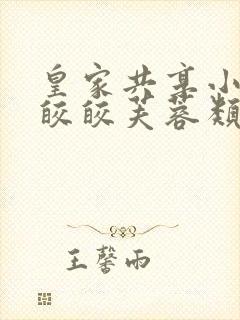 皇家共享小
皎皎芙蓉类
王馨雨